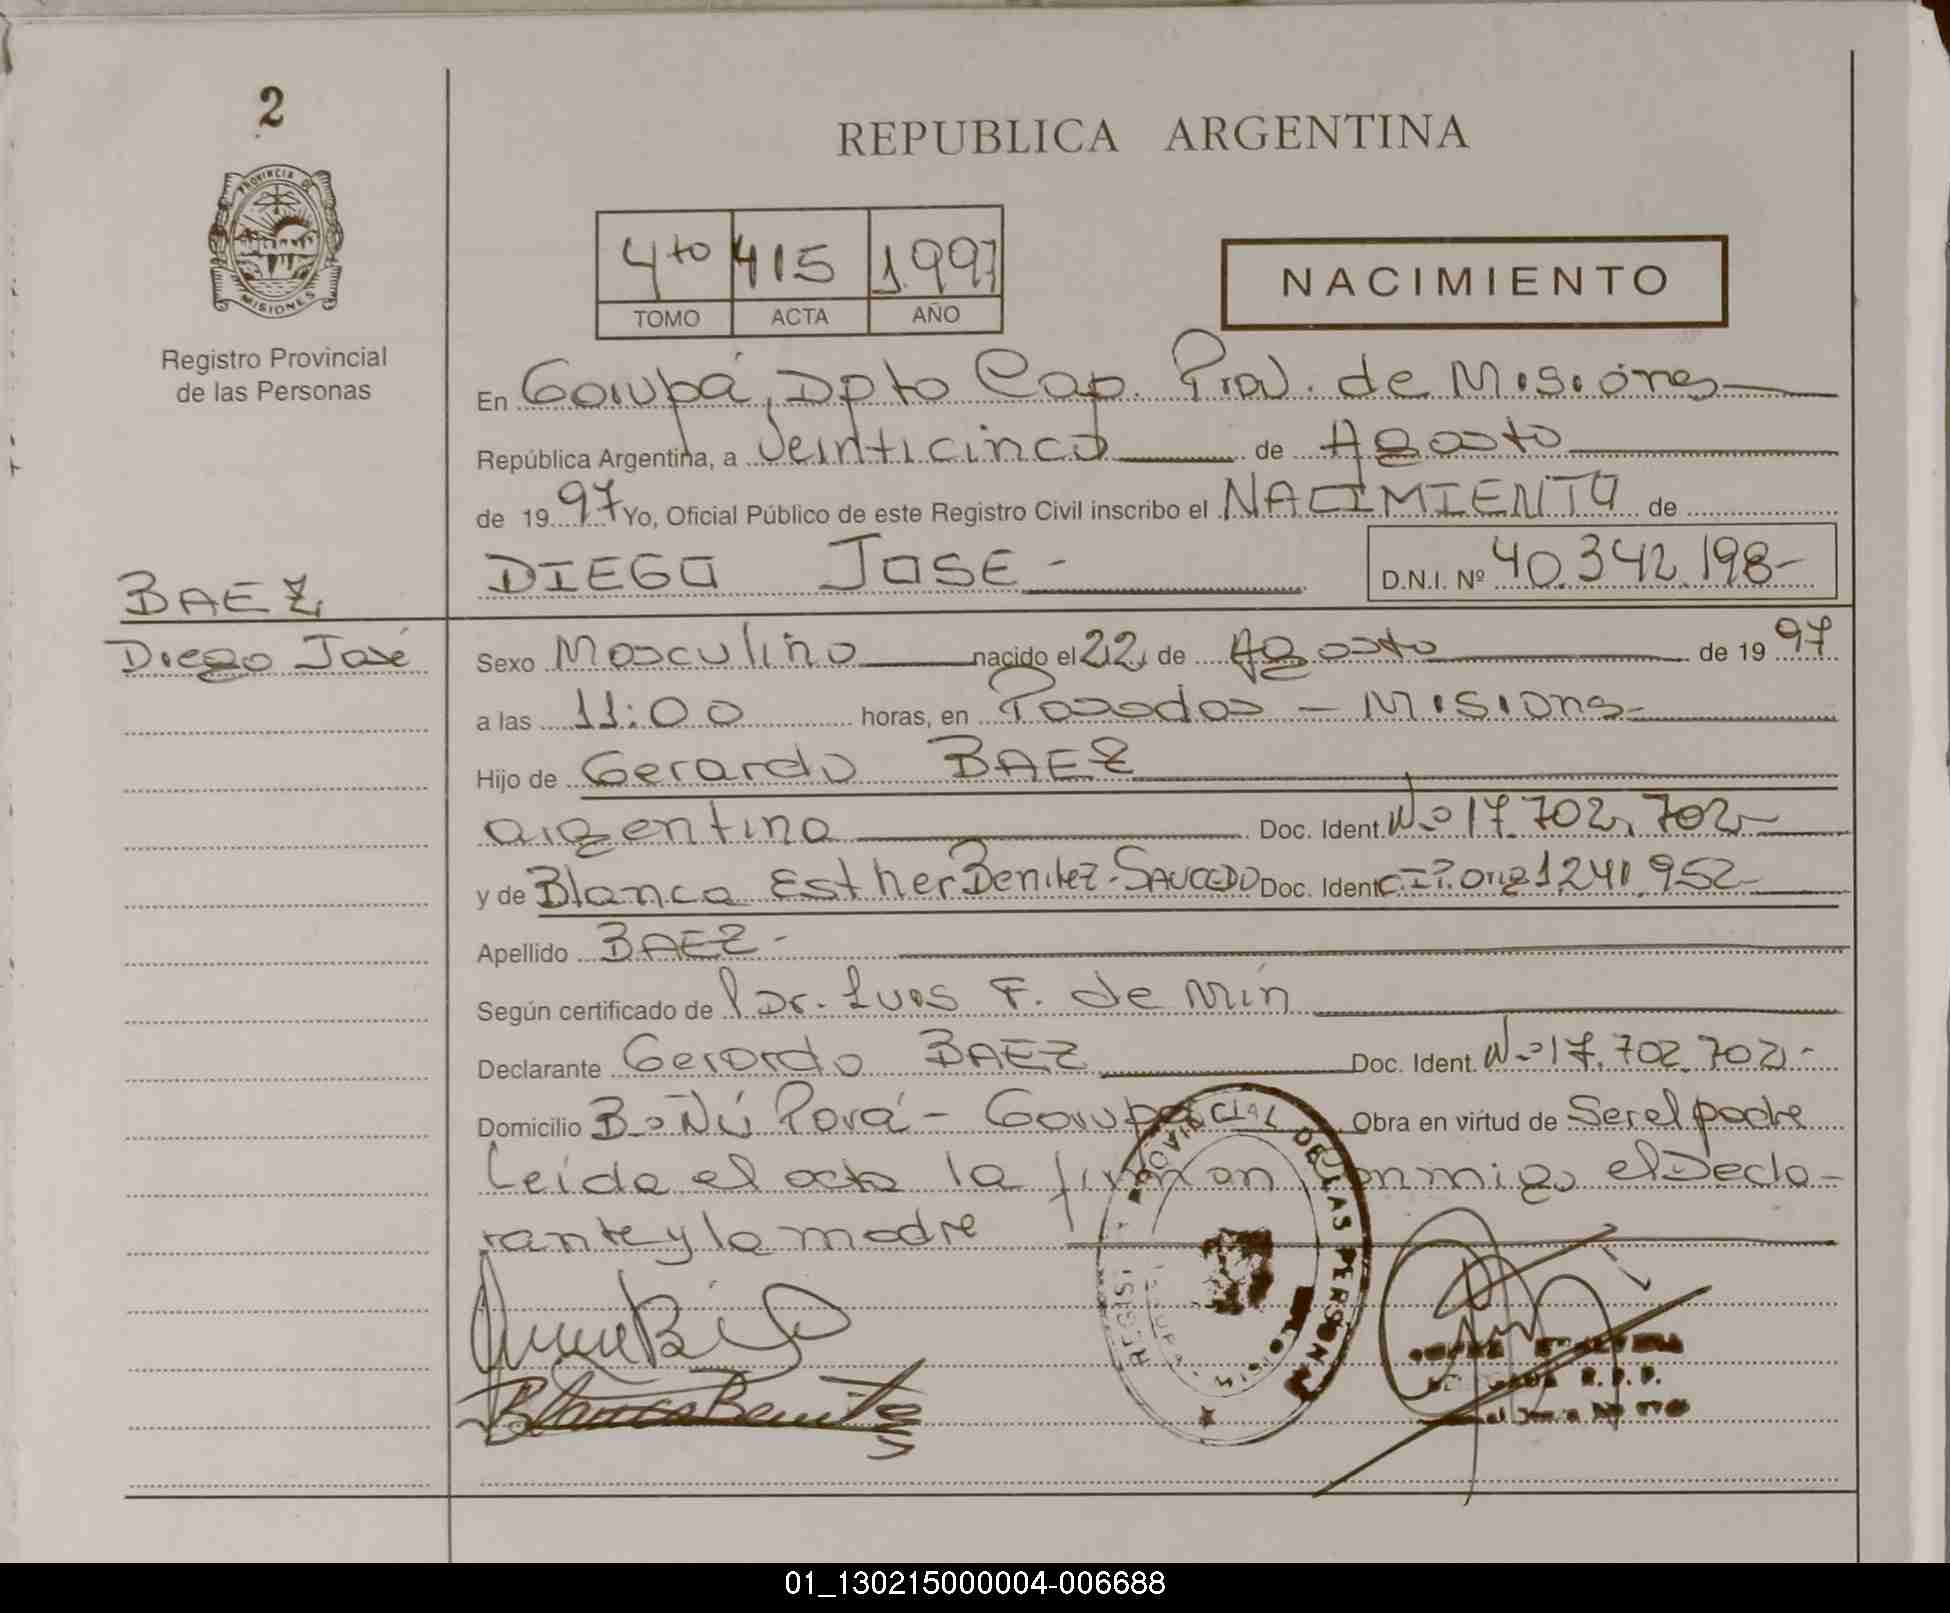 2
PROVINCIA DE
MISIONES
Registro Provincial
de las Personas
REPUBLICA ARGENTINA
4to 415 1.997
TOMO ACTA AÑO
NACIMIENTO
En Garupá, Dpto Cap. Prov. de Misiones
República Argentina, a Veinticinco de Agosto
de 1997 Yo, Oficial Público de este Registro Civil inscribo el NACIMIENTO de
DIEGO JOSE - D.N.I. Nº 40.342.198-
BAEZ,
Diego José
Sexo Masculino nacido el 22 de Agosto de 1997
a las 11:00 horas, en Posadas - Misiones-
Hijo de Gerardo BAEZ
argentino Doc. Ident. Nº 17.702.702-
y de Blanca Esther Benitez-SAUCEDO Doc. Ident. 1241.952-
Apellido BAEZ -
Según certificado de Dr. Luis F. de Min
Declarante Gerardo BAEZ Doc. Ident. Nº 17.702.702-
Domicilio Bº Ñú Porá - Garupá Obra en virtud de Ser el padre
Leída el acta la firman conmigo el Decla-
rante y la madre
PROVINCIAL DE LAS PERSONAS
Blanca Benitez
R.P.P.
01_130215000004-006688